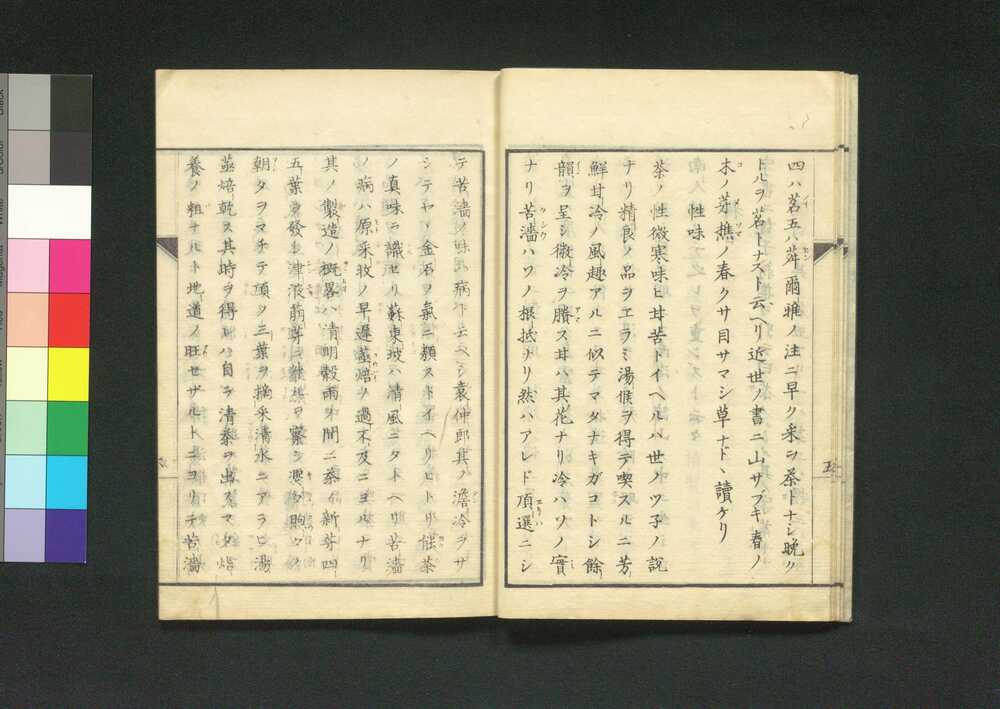 四ハ茗五ハ荈爾雅ノ注ニ早ク采ヲ茶トナシ晩ク
トルヲ茗トナスト云ヘリ近世ノ書ニ山サブキ春ノ
木ノ芽樵ノ春クサ目サマシ草ナド、讀ケリ
性味
茶ノ性微寒味ヒ甘苦トイヘルハ世ノツ子ノ説
ナリ精良ノ品ヲエラミ湯候ヲ得テ喫スルニ芳
鮮甘冷ノ風趣アルニ似テマタナキガコトシ餘
韻ヲ呈シ微冷ヲ賸ス甘ハ其花ナリ冷ハソノ實
ナリ苦濇ハソノ根抵ナリ然ハアレド頂選ニシ
テ苦濇ノ味ハ病ト云ベシ袁仲郎其ノ澹冷ヲサ
シテヤヽ金石ヲ氣ニ類ストイヘリヒトリ能茶
ノ真味ヲ識セリ蘇東坡ハ清風ニタトヘリ苦濇
ノ病ハ原采收ノ早遲蒸焙ヲ過不及ニヨルナリ
其ノ製造ノ概畧ハ清明穀雨ノ間ニ茶ノ新芽四
五葉發シ津液萠芽ニ
朝夕ヲマチテ頂ヲ三葉ヲ摘采清水ニアラヒ湯
蒸焙乾ス其時ヲ得レハ自ラ清泰ヲ出スマタ焙
養ノ粗ナルト地道ノ旺セザルトニヨリテ苦濇
五